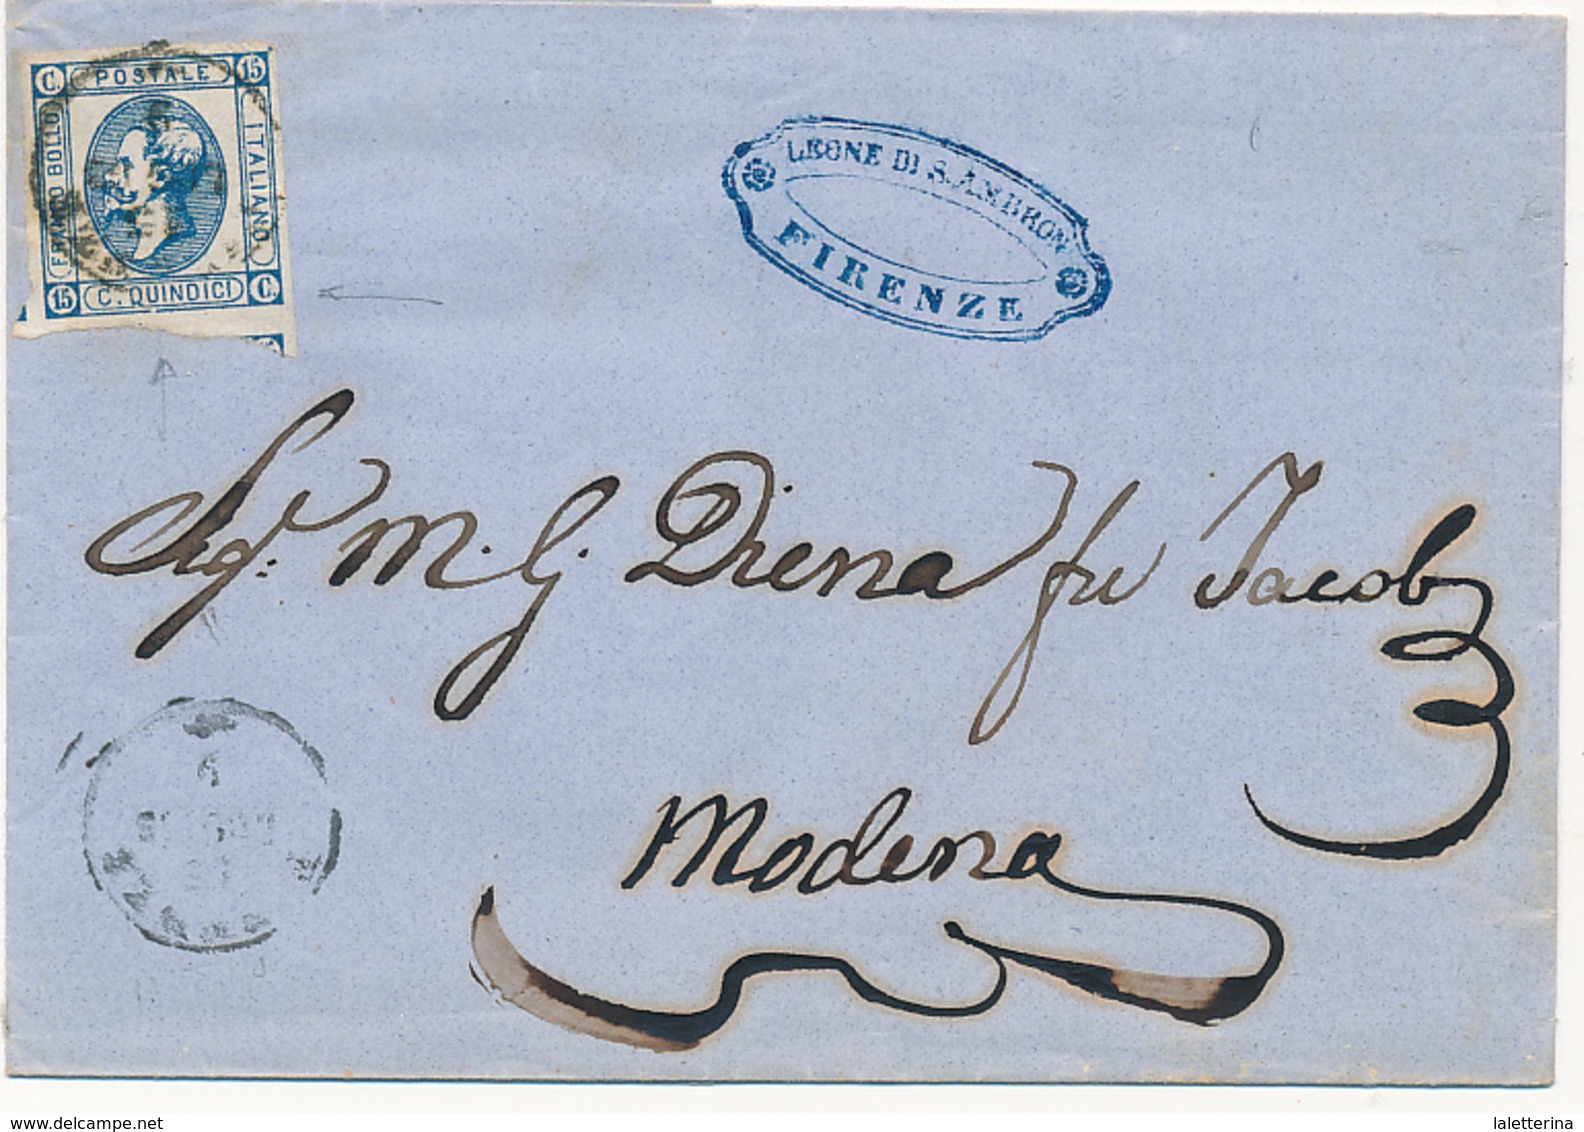 C. POSTALE 15
FRANCO BOLLO
ITALIANO
15 C. QUINDICI C.
LEONE DI S. AMBRON
FIRENZE
Sig. M. G. Diena fu Jacob
Modena
laletterina